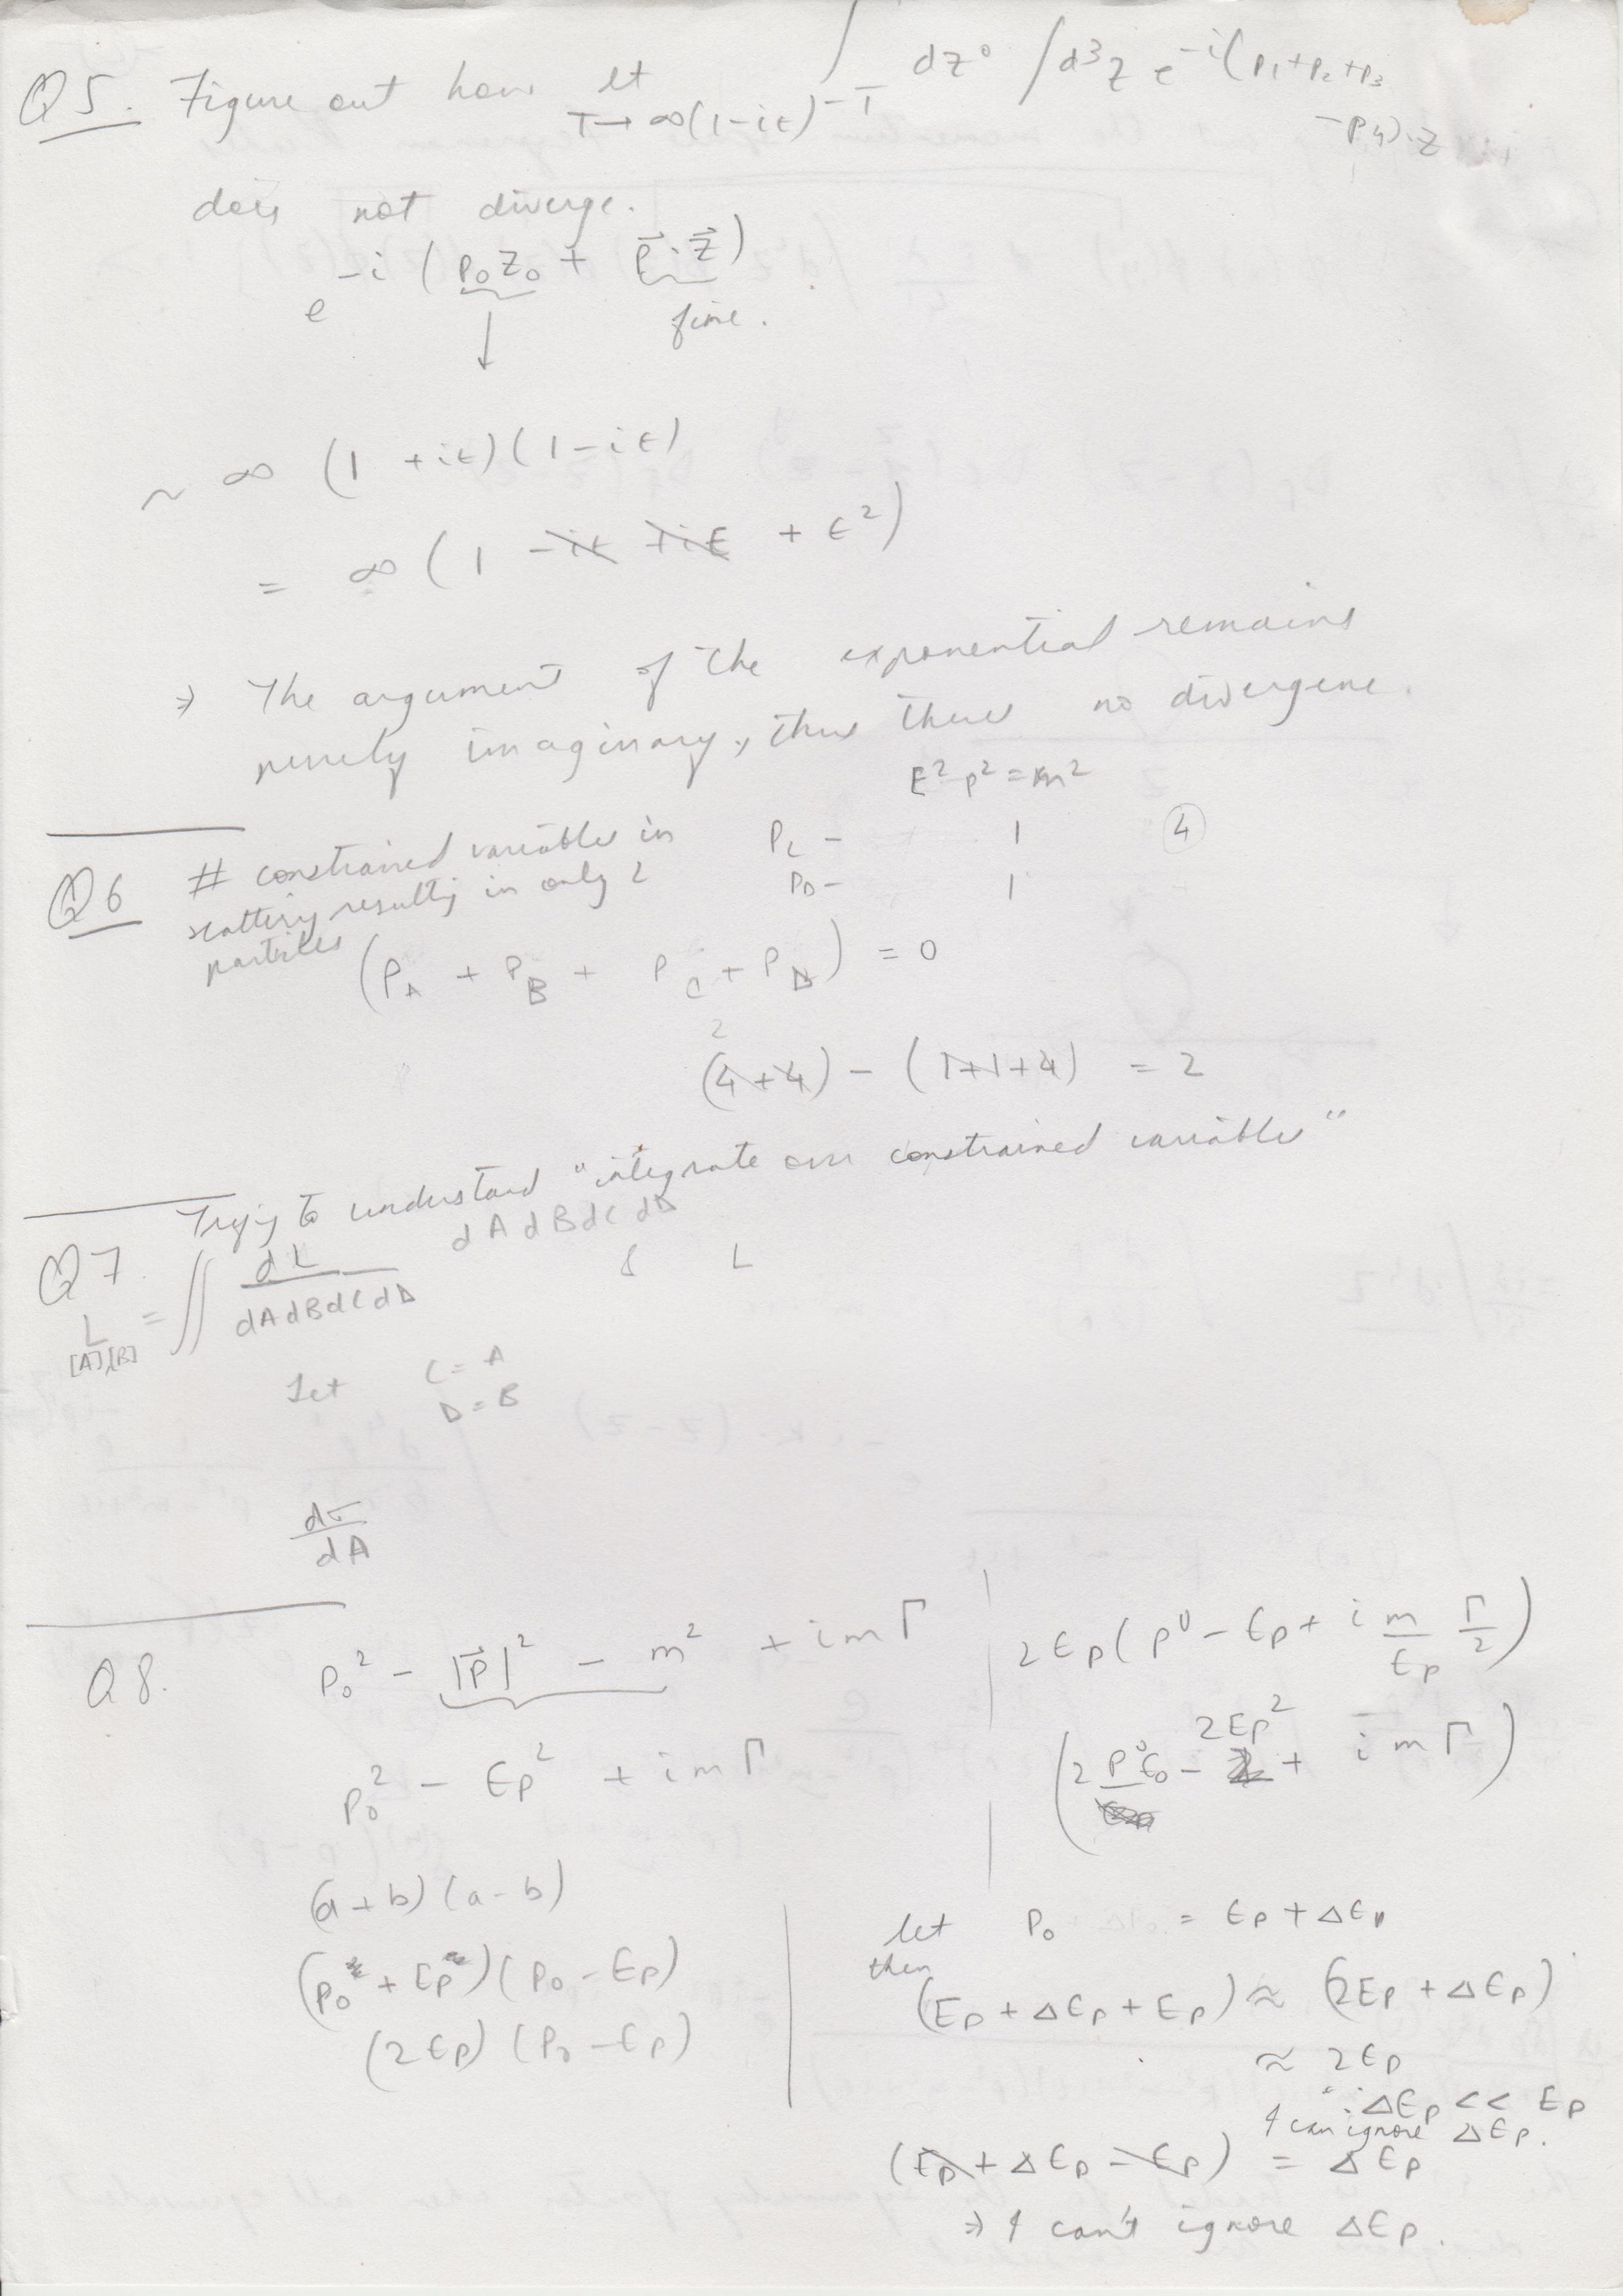 Q5. Figure out how lt T→∞(1-iε) ∫ -T dz⁰ ∫d³z e^-i(p₁+p₂+p₃
-p₄)·z
does not diverge.
e^-i(p₀z₀ + p⃗·z⃗)
fine.
↓
~ ∞ (1 + iε)(1-iε)
= ∞ (1 -iε +iε + ε²)
⇒ The argument of the exponential remains
purely imaginary, thus there no divergene.
E² p² = m²
Q6 # constrained variables in
scattering resulting in only 2
particles
P_C - 1 ④
P_D - 1
(P_A + P_B + P_C + P_D) = 0
2
(4+4) - (1+1+4) = 2
Trying to understand "integrate over constrained variables"
Q7 dA dB dC dD
L [A],[B] = ∬ dL / dA dB dC dD
L
Let C = A
D = B
dσ / dA
Q8. p₀² - |p⃗|² - m² + imΓ
p₀² - Ep² + imΓ
(a+b)(a-b)
(p₀ + Ep)(p₀ - Ep)
(2Ep)(p₀ - Ep)
2Ep(p⁰ - Ep + i m/Ep Γ/2)
2Ep²
(2 p⁰ε₀ - + imΓ)
let p₀ = Ep + ΔEp
then
(Ep + ΔEp + Ep) ≈ (2Ep + ΔEp)
≈ 2Ep
∵ ΔEp << Ep
I can ignore ΔEp.
(Ep + ΔEp - Ep) = ΔEp
⇒ I can't ignore ΔEp.